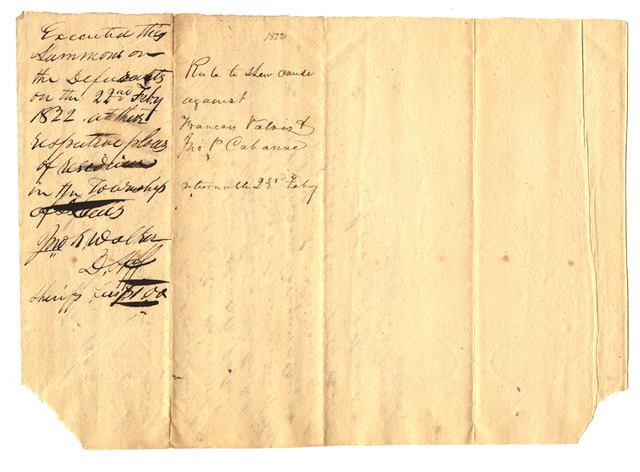 Executed this
Summons on
the Defendants
on the 22nd Feby
1822 at their
respective places
of residence
in the Township
of St Louis
Jno K. Walker
D. Shff
Sheriffs fees $1.00
1822
Rule to shew cause
against
Francois Valois &
Jno P Cabanne
returnable 23rd Feby